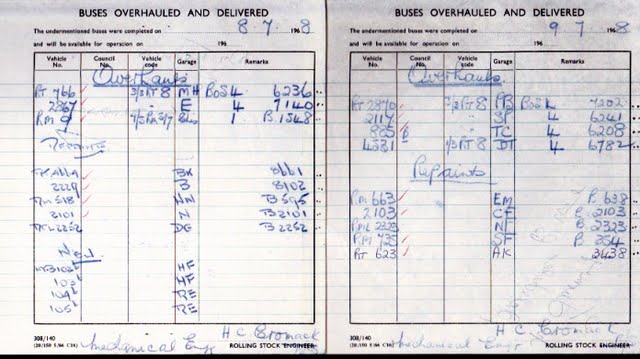 BUSES OVERHAULED AND DELIVERED
The undermentioned buses were completed on 8 7 196 8
and will be available for operation on 196
Vehicle No. Council No. Vehicle code Garage Remarks
Overhauls
RT 766 3/3 RT 8 MH Bos 4 6236
2867 E 4 7140
RM 9 1 B 1548
Repaints
BK 8661
2229 B 8102
RM 518 HN B 595
2101 N B 2101
RCL 2252 DG B 2252
New
HF
HF
104 RE
105 RE
308/140
Mechanical Engr H C Cromack
ROLLING STOCK ENGINEER
BUSES OVERHAULED AND DELIVERED
The undermentioned buses were completed on 9 7 196 8
and will be available for operation on 196
Vehicle No. Council No. Vehicle code Garage Remarks
Overhauls
RT 2870 RT 8 Bos 4 7202
2117 SP 4 6241
885 TC 4 6208
4381 1/3 RT 8 DT 4 6782
Repaints
RM 663 EM B 638
2103 CF B 2103
RML 2323 NF B 2323
RM 735 SF B
RT 623 AK 3438
308/140
Mechanical Engr H C Cromack
ROLLING STOCK ENGINEER